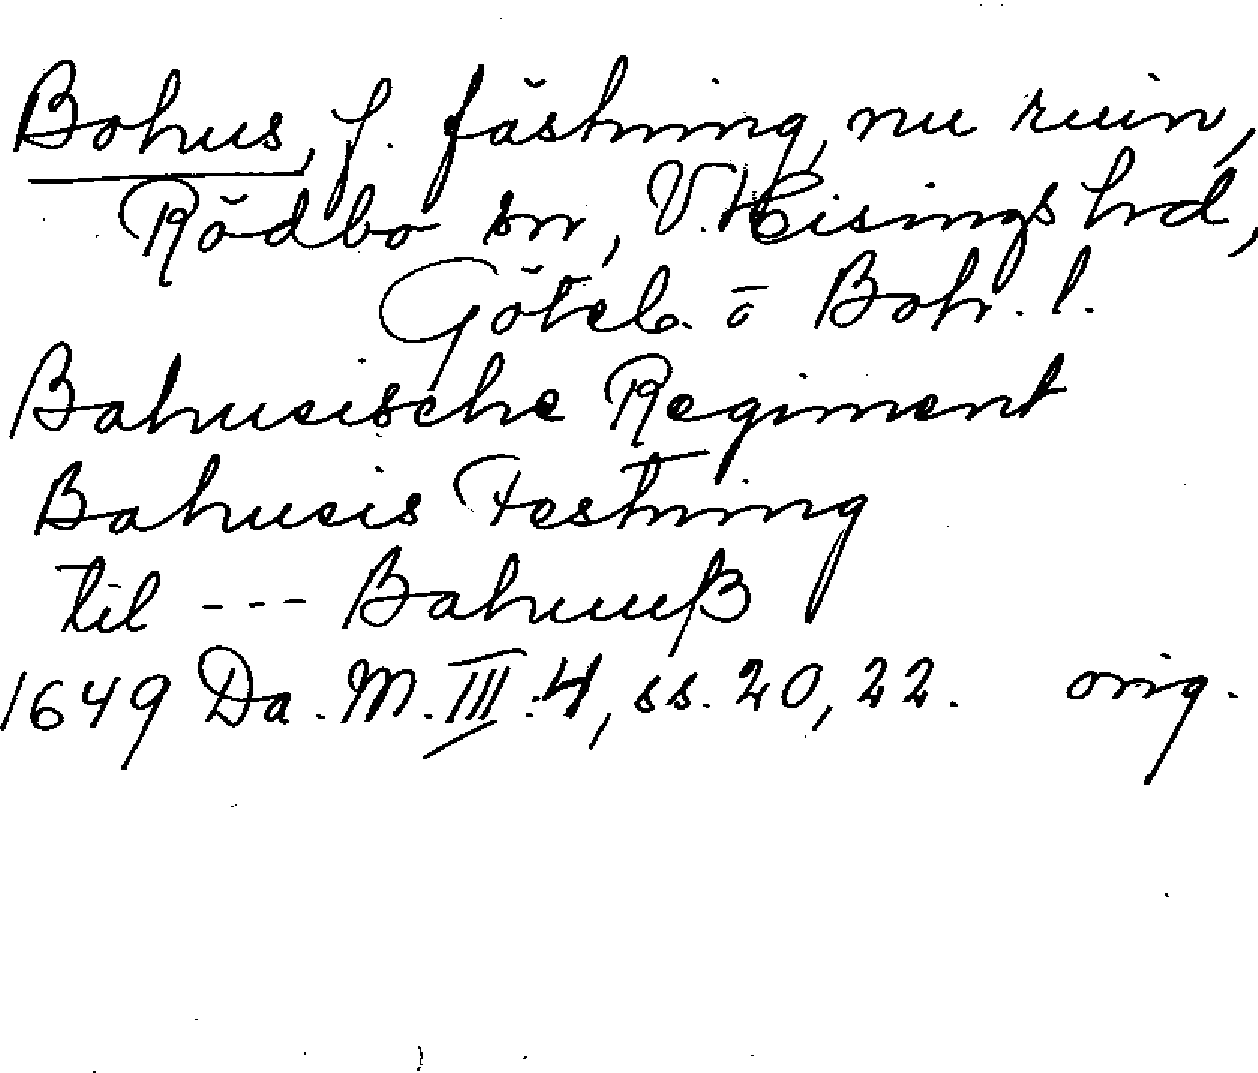 Bohus, f. fästning, nu ruin,
Rödbo sn, V. Hisings hrd,
Göteb. o Boh. l.
Bahusische Regiment
Bahusis Festning
til --- Bahuuß
1649 Da. M. III. 4, ss. 20, 22. orig.